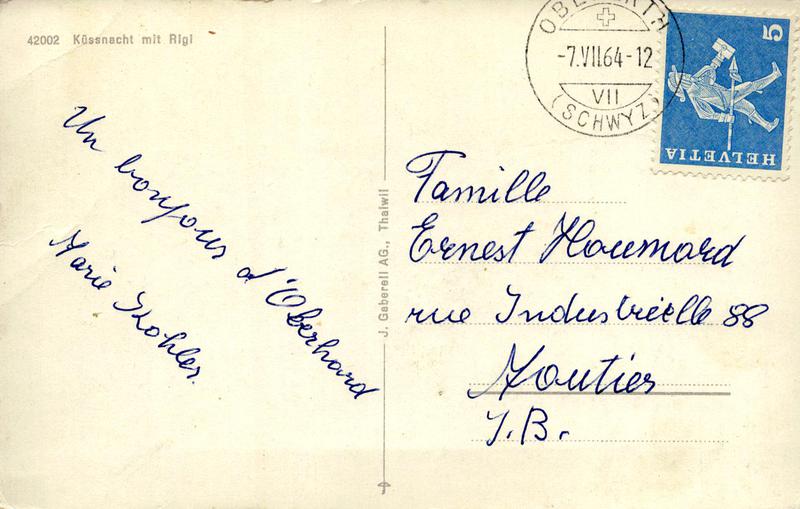 42002 Küssnacht mit Rigi
Un bonjour d'Oberhard
Marie Kohler.
J. Gaberell AG., Thalwil
-7.VII.64-12
VII
(SCHWYZ)
5
HELVETIA
Famille
Ernest Houmard
rue Industrielle 88
Moutier
J.B.